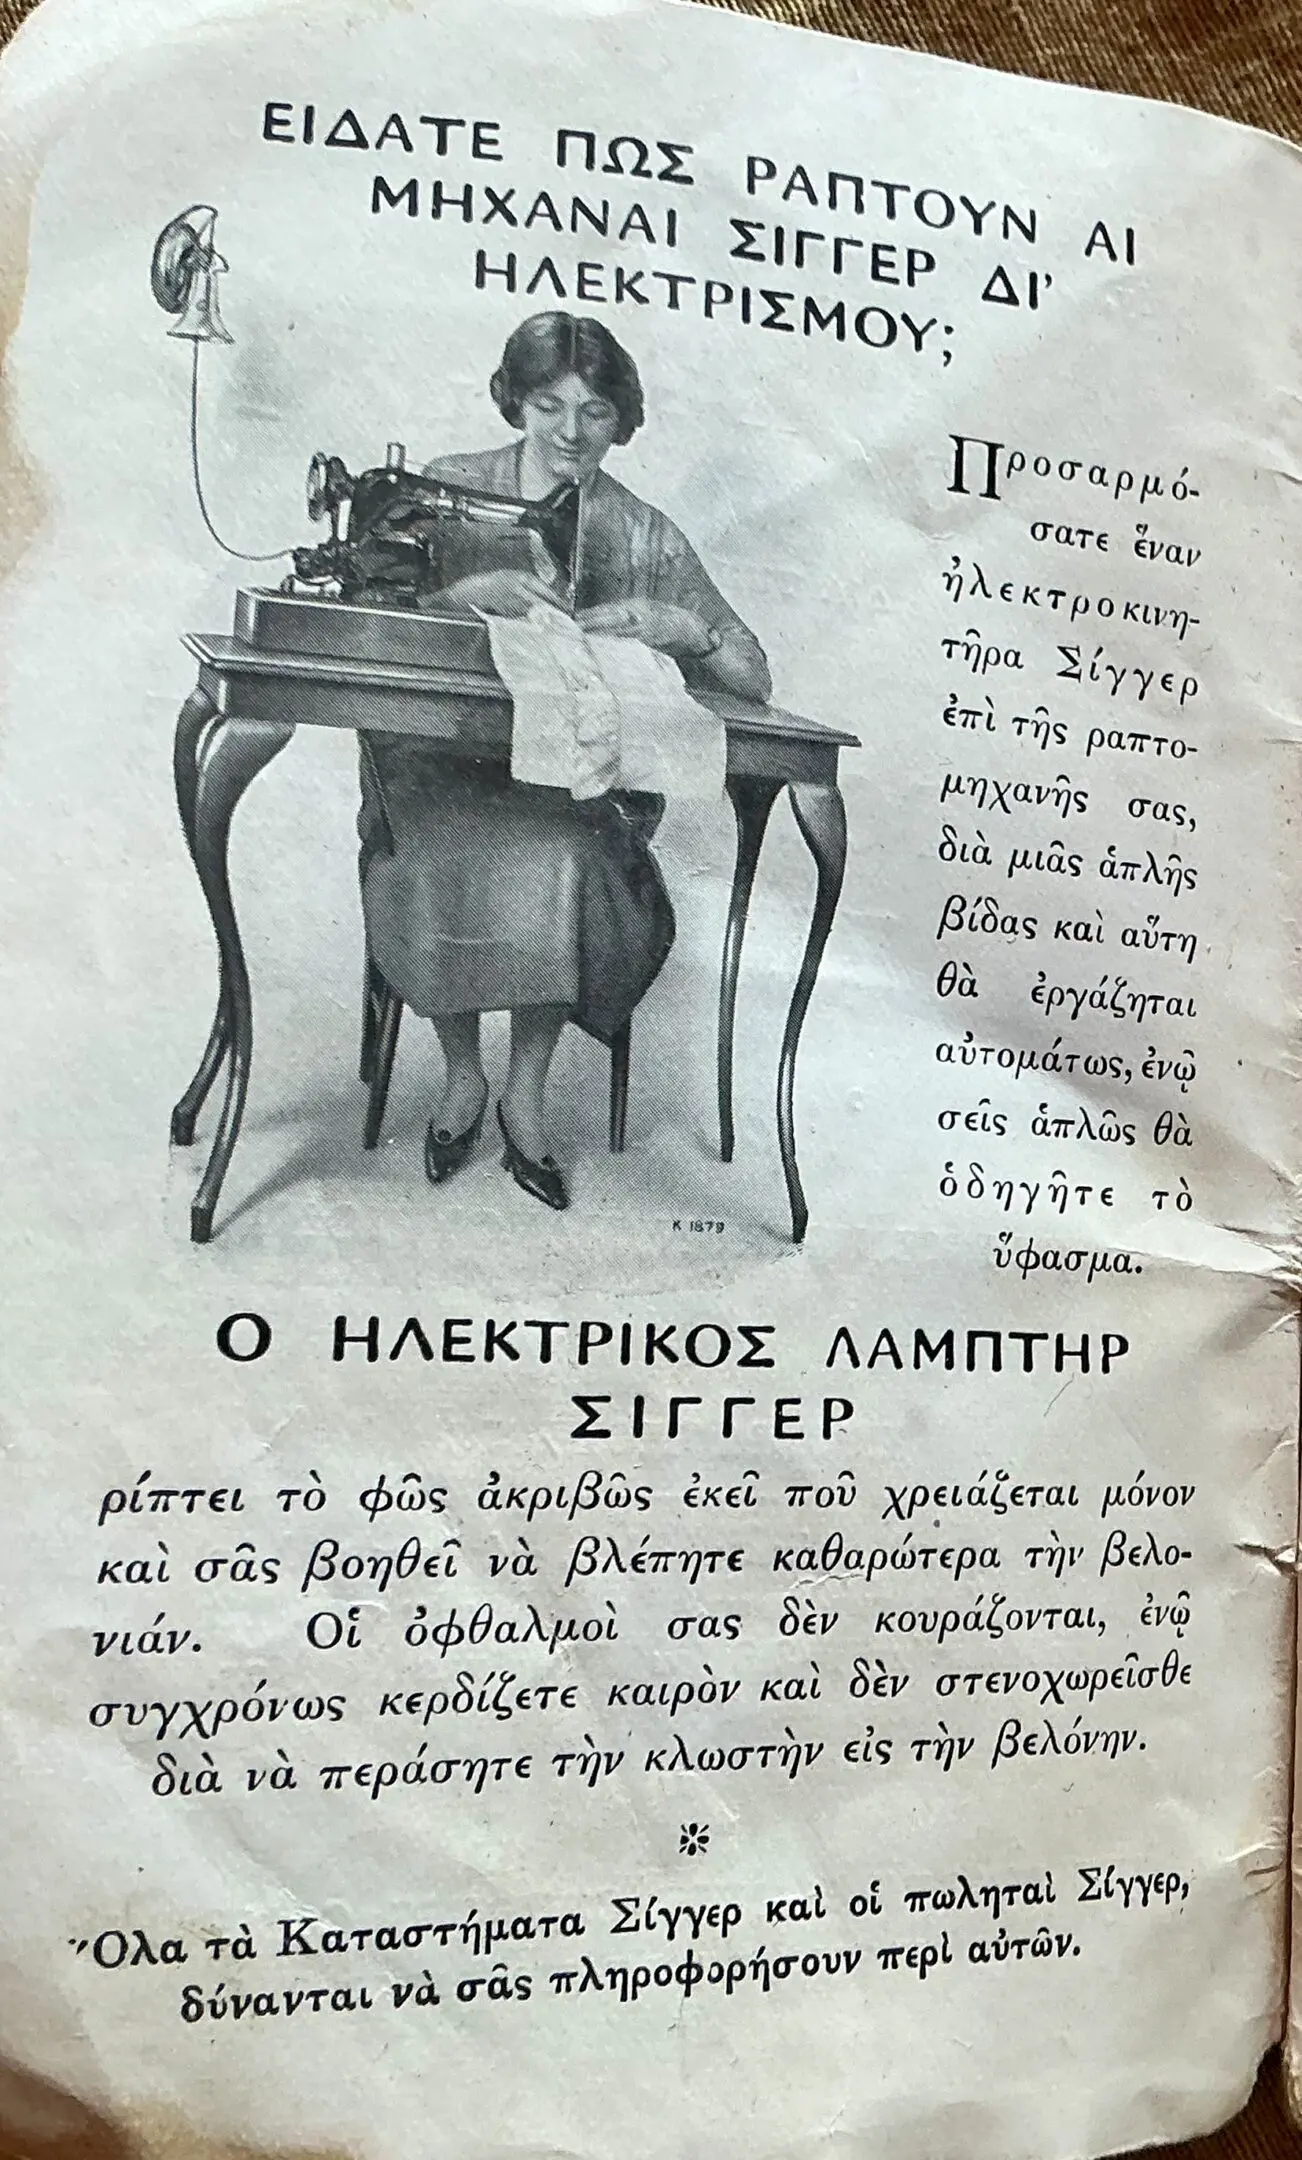 ΕΙΔΑΤΕ ΠΩΣ ΡΑΠΤΟΥΝ ΑΙ
ΜΗΧΑΝΑΙ ΣΙΓΓΕΡ ΔΙ'
ΗΛΕΚΤΡΙΣΜΟΥ;
Προσαρμό-
σατε ἕναν
ἠλεκτροκινη-
τῆρα Σίγγερ
ἐπὶ τῆς ραπτο-
μηχανῆς σας,
διὰ μιᾶς ἁπλῆς
βίδας καὶ αὕτη
θὰ ἐργάζηται
αὐτομάτως, ἐνῷ
σεῖς ἁπλῶς θὰ
ὁδηγῆτε τὸ
ὕφασμα.
K 1879
Ο ΗΛΕΚΤΡΙΚΟΣ ΛΑΜΠΤΗΡ
ΣΙΓΓΕΡ
ρίπτει τὸ φῶς ἀκριβῶς ἐκεῖ ποῦ χρειάζεται μόνον
καὶ σᾶς βοηθεῖ νὰ βλέπητε καθαρώτερα τὴν βελο-
νιάν. Οἱ ὀφθαλμοὶ σας δὲν κουράζονται, ἐνῷ
συγχρόνως κερδίζετε καιρὸν καὶ δὲν στενοχωρεῖσθε
διὰ νὰ περάσητε τὴν κλωστὴν εἰς τὴν βελόνην.
Ὅλα τὰ Καταστήματα Σίγγερ καὶ οἱ πωληταὶ Σίγγερ,
δύνανται νὰ σᾶς πληροφορήσουν περὶ αὐτῶν.